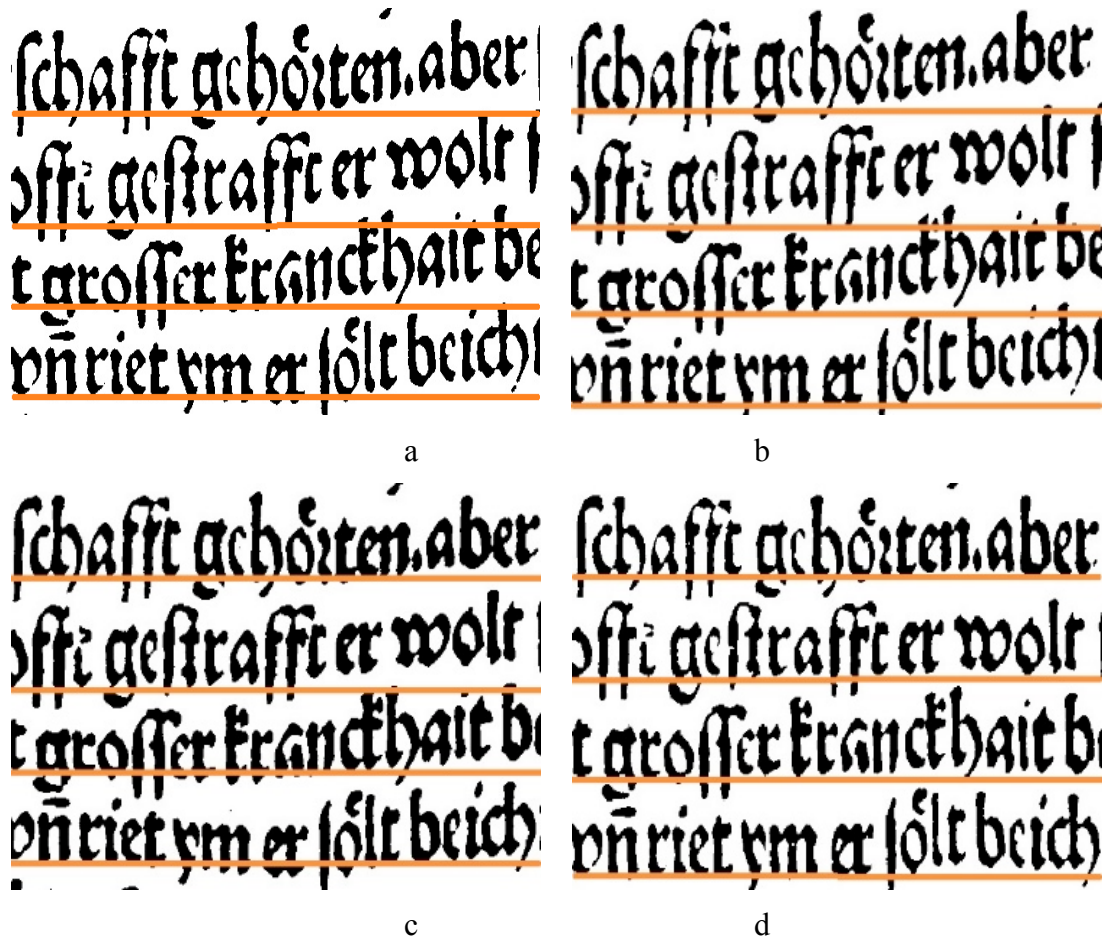 ſchafft gehoͤꝛten. aber
offi geſtrafft er wolt
t groſſer kranckhait be
vn̄ riet ym er ſoͤlt beich
a
ſchafft gehoͤꝛten. aber
offi geſtrafft er wolt
t groſſer kranckhait be
vn̄ riet ym er ſoͤlt beich
b
ſchafft gehoͤꝛten. aber
offi geſtrafft er wolt
t groſſer kranckhait be
vn̄ riet ym er ſoͤlt beich
c
ſchafft gehoͤꝛten. aber
offi geſtrafft er wolt
t groſſer kranckhait be
vn̄ riet ym er ſoͤlt beich
d